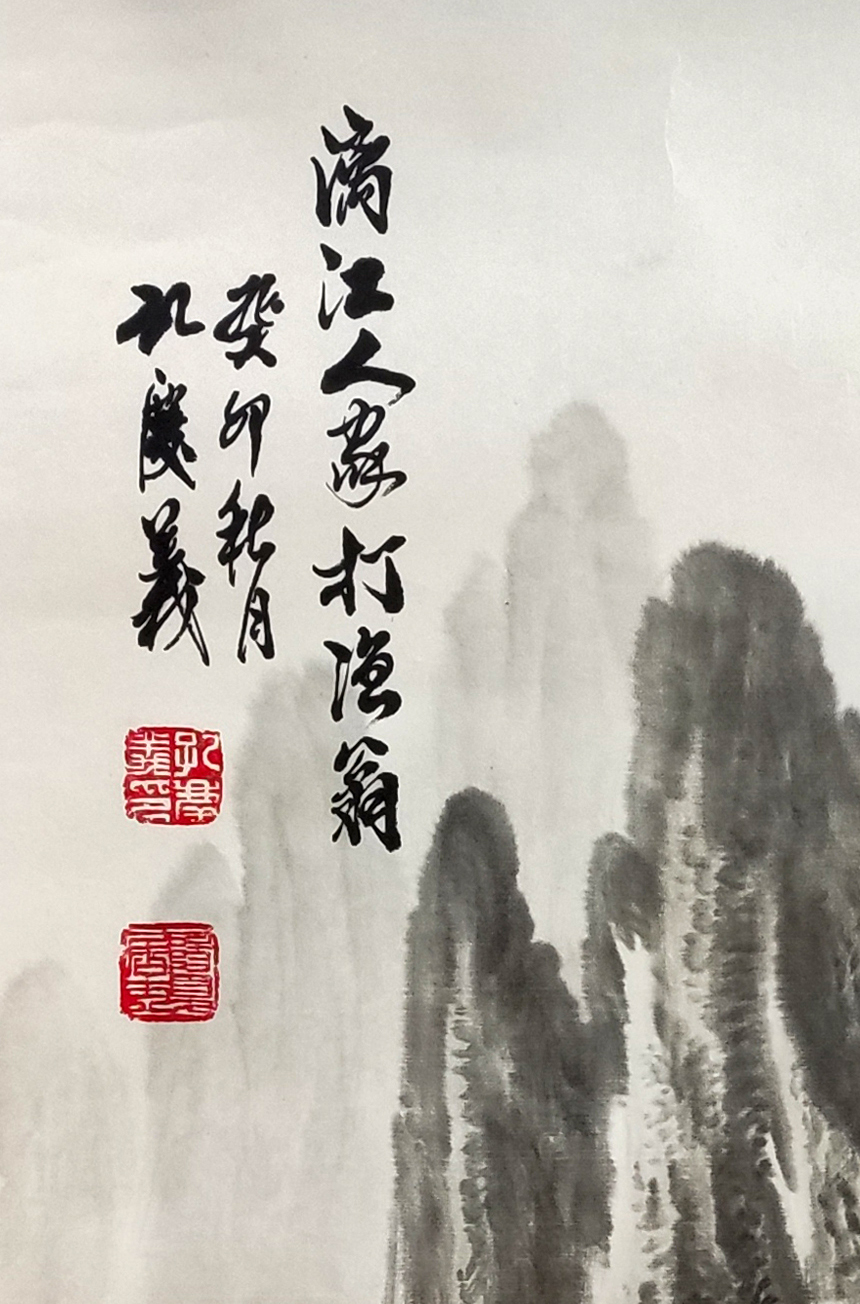 漓江人家打渔翁
癸卯秋月
孔庆义